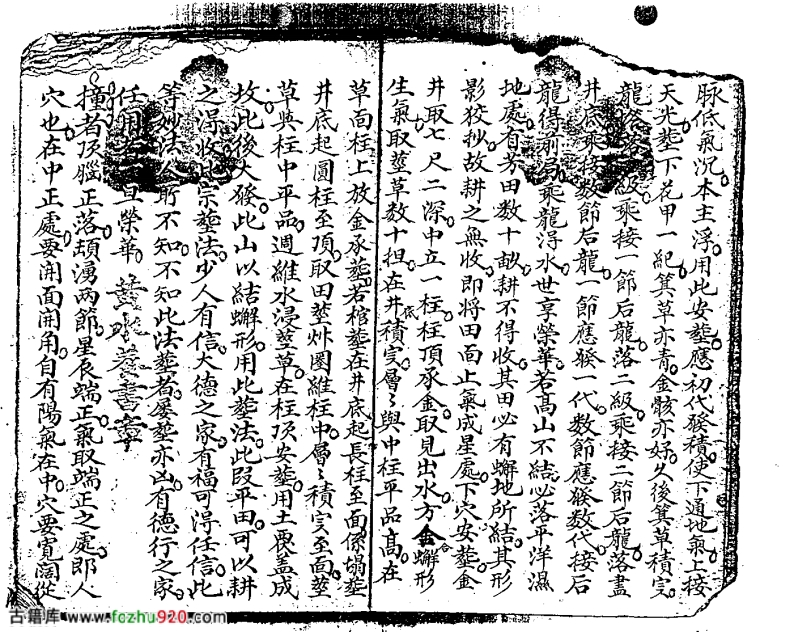 脉低氣沉本主浮用此安塟應初代發積使下通地氣上接
天光塟下花甲一紀箕草亦青金骸亦妳久後箕草積定
龍格落一級乘接一節后龍落二級乘接二節后龍落盡
井底乘接数節后龍一節應發一代数節應發数代接后
龍得刑局乘龍淂水世享榮華若髙山不結必落平洋濕
地處有芳田数十畝耕不得收其田必有蠏地所結其形
影狡抄故耕之無收即將田面上氣成星處下穴安塟金
井取七尺二深中立一柱柱頂承金取見出水方金蠏形
生氣取塟草数十担在井底積定層〻與中柱平品髙在
草面柱上放金承塟若棺塟在井底起長柱至面傑塌塟
井底起圓柱至頂取田塟炑圏維柱中層〻積定至面塟
草與柱中平品週維水浸塟草在柱頂安塟用土覆盖成
坟此後大發此山以結蠏形用此塟法此段平田可以耕
之淂收此宗塟法少人有信大德之家有福可得任信此
等妙法人所不知不知此法塟者屡塟亦凶有德行之家
任用 旦榮華 章
撞者頂腦正落頏湧兩節星辰端正氣取端正之處郎人
穴也在中正處要開面開角自有陽氣在中穴要寛闊從
古籍库 www.fczhu920.com